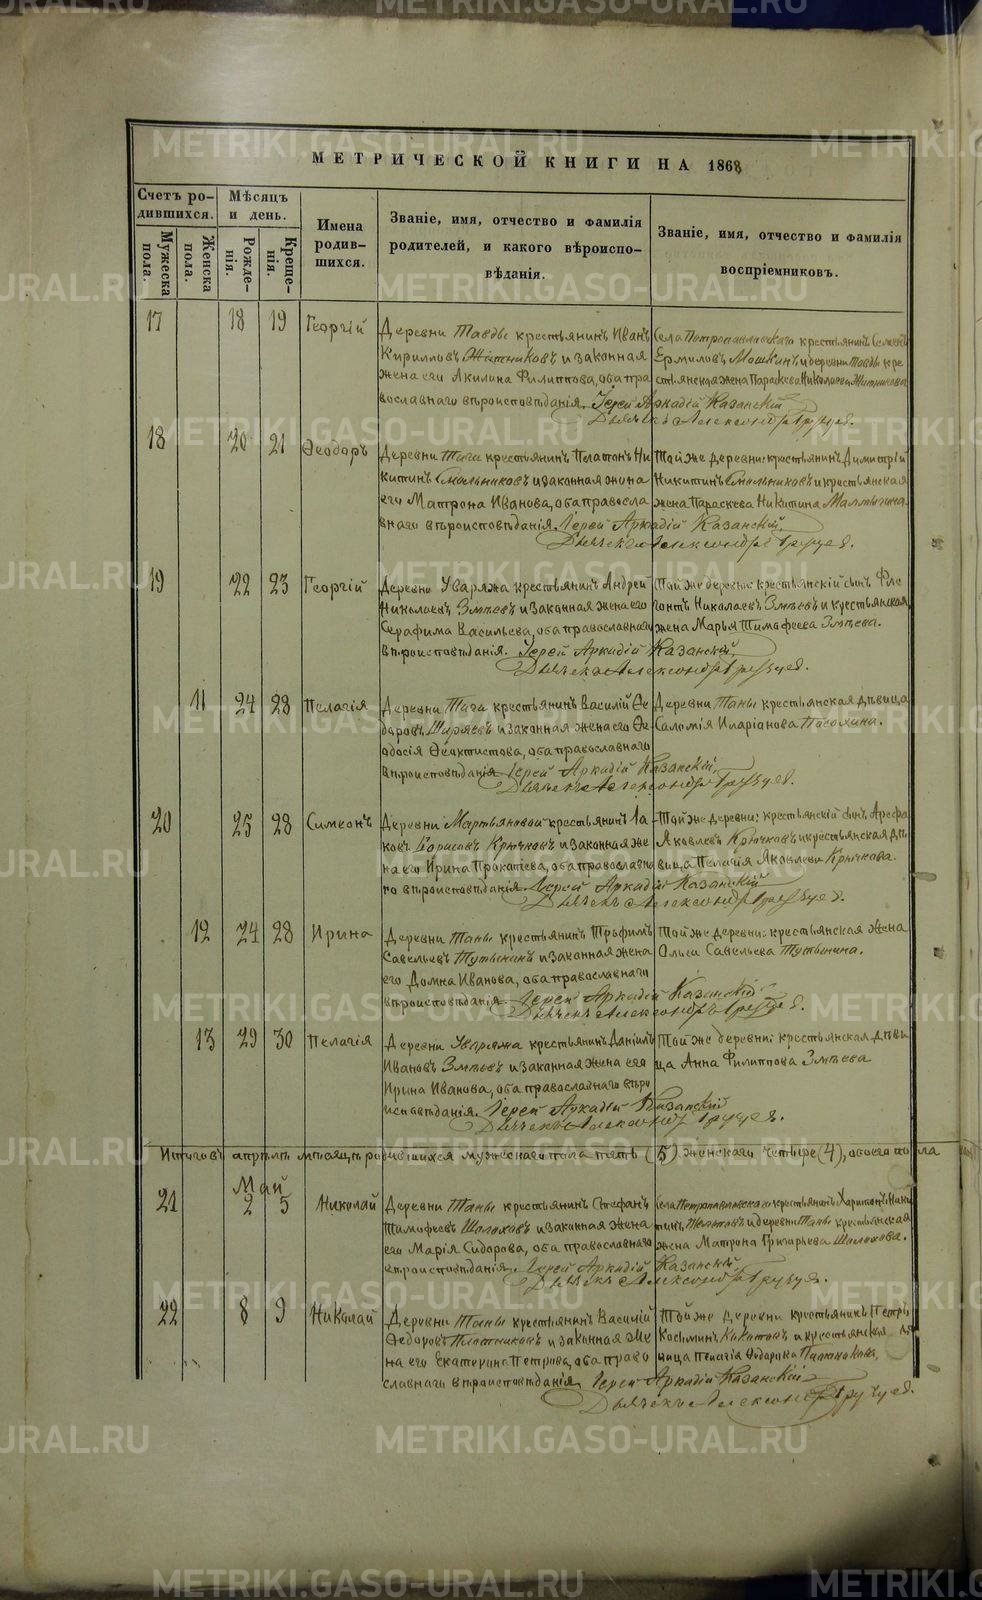 МЕТРИЧЕСКОЙ КНИГИ НА 1868
Счетъ ро-
дившихся.
Мѣсяцъ
и день.
Имена
родив-
шихся.
Званіе, имя, отчество и фамилія
родителей, и какого вѣроиспо-
вѣданія.
Званіе, имя, отчество и фамилія
воспріемниковъ.
Мужеска
пола.
Женска
пола.
Рожде-
нія.
Креще-
нія.
17 18 19 Георгій
Деревни Тавды крестьянинъ Иванъ
Кирилловъ Житниковъ и законная
жена его Акилина Филиппова, оба пра
вославнаго вѣроисповѣданія. Іерей Аркадій Казанскій
Села Петропавловскаго крестьянинъ
Ермиловъ Мошкинъ и деревни Тавды кре
стьянская жена Параскева Николаева Житникова
Дьячекъ Александръ
18 20 21 Ѳеодоръ
Деревни Тага крестьянинъ Платонъ Ни
китинъ Смольниковъ и законная жена
его Матрона Иванова, оба правосла
внаго вѣроисповѣданія. Іерей Аркадій Казанскій
Той же деревни: крестьянинъ Димитрій
Никитинъ Смольниковъ и крестьянская
жена Параскева Никитина
Дьячекъ Александръ
19 22 23 Георгій
Деревни Уваряжа крестьянинъ Андрей
Николаевъ Змѣевъ и законная жена его
Серафима Васильева, оба православнаго
вѣроисповѣданія. Іерей Аркадій Казанскій
Той же деревни: крестьянскій сынъ Фле
гонтъ Николаевъ Змѣевъ и крестьянская
жена Марья Тимофеева Змѣева.
Дьячекъ Александръ
11 24 28 Пелагія
Деревни Тага крестьянинъ Василій Ѳе
доровъ Ширяевъ и законная жена его Ѳе
одосія Ѳеоктистова, оба православнаго
вѣроисповѣданія Іерей Аркадій Казанскій
Деревни Таны крестьянская дѣвица
Саломія Иларіанова
Дьячекъ Александръ
20 25 28 Симеонъ
Деревни Мартьяновой крестьянинъ Іа
ковъ Борисовъ Крючковъ и законная же
на его Ирина Прокопіева, оба православна
го вѣроисповѣданія. Іерей Аркадій Казанскій
Той же деревни: крестьянскій сынъ Арефа
Яковлевъ Крючковъ и крестьянская дѣ
вица Пелагія Яковлева Крючкова.
Дьячекъ Александръ
12 24 28 Ирина
Деревни Таны крестьянинъ Трофимъ
Савельевъ Тутынинъ и законная жена
его Домна Иванова, оба православнаго
вѣроисповѣданія. Іерей Аркадій Казанскій
Той же деревни: крестьянская жена
Ольга Савельева Тутынина.
Дьячекъ Александръ
13 29 30 Пелагія
Деревни Уваряжа крестьянинъ Даніилъ
Ивановъ Змѣевъ и законная жена его
Ирина Иванова, оба православнаго вѣро
исповѣданія. Іерей Аркадій Казанскій
Той же деревни: крестьянская дѣви
ца Анна Филиппова Змѣева
Дьячекъ Александръ
Итого въ апрѣлѣ мѣсяцѣ родившихся мужескаго пола пять (5) женскаго четыре (4), обоего пола
Май
21 2 5 Николай
Деревни Таны крестьянинъ Стефанъ
Тимофеевъ Шалоховъ и законная жена
его Марія Сидорова, оба православнаго
вѣроисповѣданія. Іерей Аркадій Казанскій
Села Петропавловскаго крестьянинъ Харитонъ Ники
тинъ и деревни Таны крестьянская
жена Матрона Григорьева Шалохова.
Дьячекъ Александръ
22 8 9 Николай
Деревни Таны крестьянинъ Василій
Ѳедоровъ Плотниковъ и законная же
на его Екатерина Петрова, оба право
славнаго вѣроисповѣданія Іерей Аркадій Казанскій
Той же деревни крестьянинъ Петръ
Косьминъ и крестьянская дѣ
вица Пелагія Ѳедорова Плотникова,
Дьячекъ Александръ
METRIKI.GASO-URAL.RU